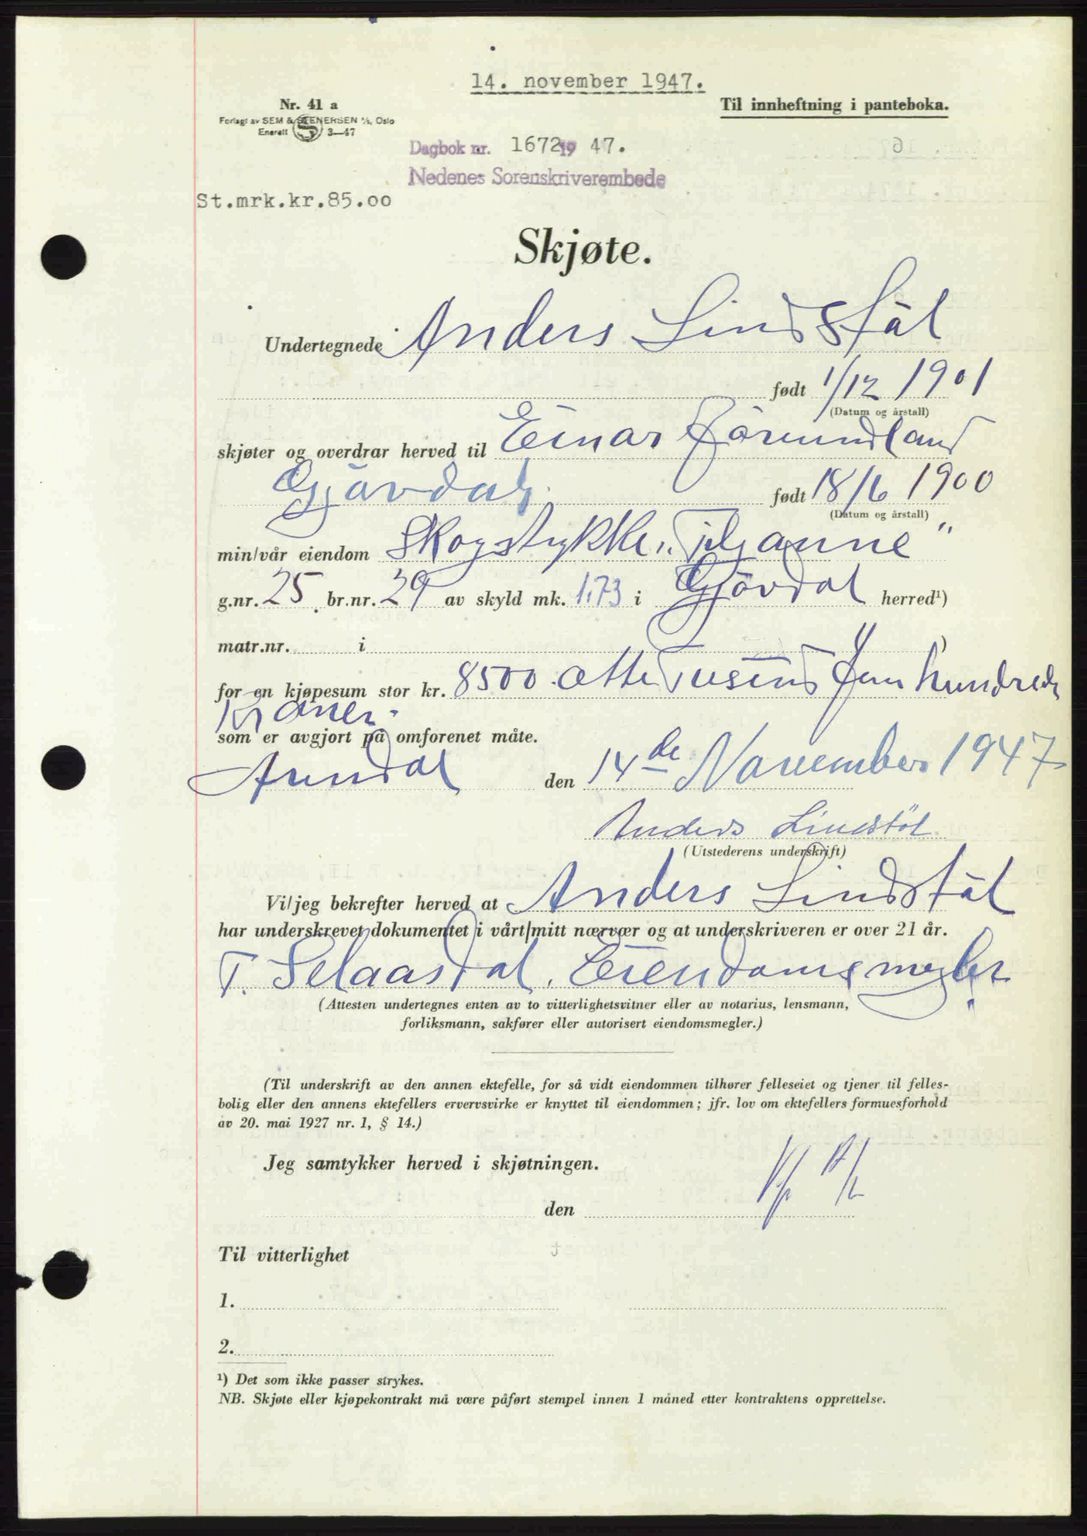 14. november 1947.
Til innheftning i panteboka.
Nr. 41 a
Forlagt av SEM & STENERSEN A/S, Oslo
Enerett S 3—47
Dagbok nr. 1672 19 47.
Nedenes Sorenskriverembede
St.mrk.kr.85.00
Skjøte.
Undertegnede Anders Lindstål
født 1/12 1901
(Datum og årstall)
skjøter og overdrar herved til Einar Jørundland
Gjøvdal født 18/6 1900
(Datum og årstall)
min/vår eiendom Skogstykke
g.nr. 25 br.nr. 29 av skyld mk. 1.73 i Gjøvdal herred¹)
matr.nr. i ¹)
for en kjøpesum stor kr. 8500 otte tusind fem hundrede
Kroner.
som er avgjort på omforenet måte.
Arendal den 14 de November 1947
Anders Lindstøl
(Utstederens underskrift)
Vi/jeg bekrefter herved at Anders Lindstål
har underskrevet dokumentet i vårt/mitt nærvær og at underskriveren er over 21 år.
T. Selaasdal. Eiendomsmegler
(Attesten undertegnes enten av to vitterlighetsvitner eller av notarius, lensmann,
forliksmann, sakfører eller autorisert eiendomsmegler.)
(Til underskrift av den annen ektefelle, for så vidt eiendommen tilhører felleseiet og tjener til felles-
bolig eller den annens ektefellers ervervsvirke er knyttet til eiendommen; jfr. lov om ektefellers formuesforhold
av 20. mai 1927 nr. 1, § 14.)
Jeg samtykker herved i skjøtningen.
den
Til vitterlighet
1.
2.
¹) Det som ikke passer strykes.
NB. Skjøte eller kjøpekontrakt må være påført stempel innen 1 måned etter kontraktens opprettelse.